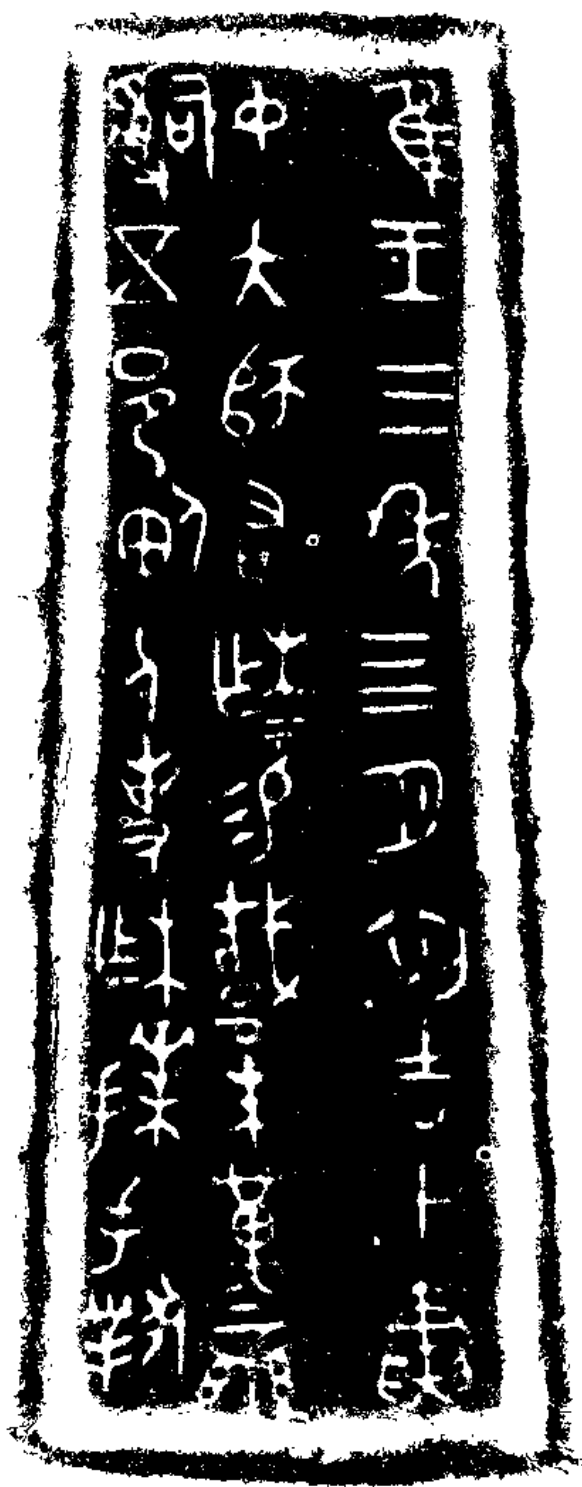 隹王三年四月初吉甲寅
中大師右柞＝易載朱黃䜌
𤔲五邑佃人事柞拜手對